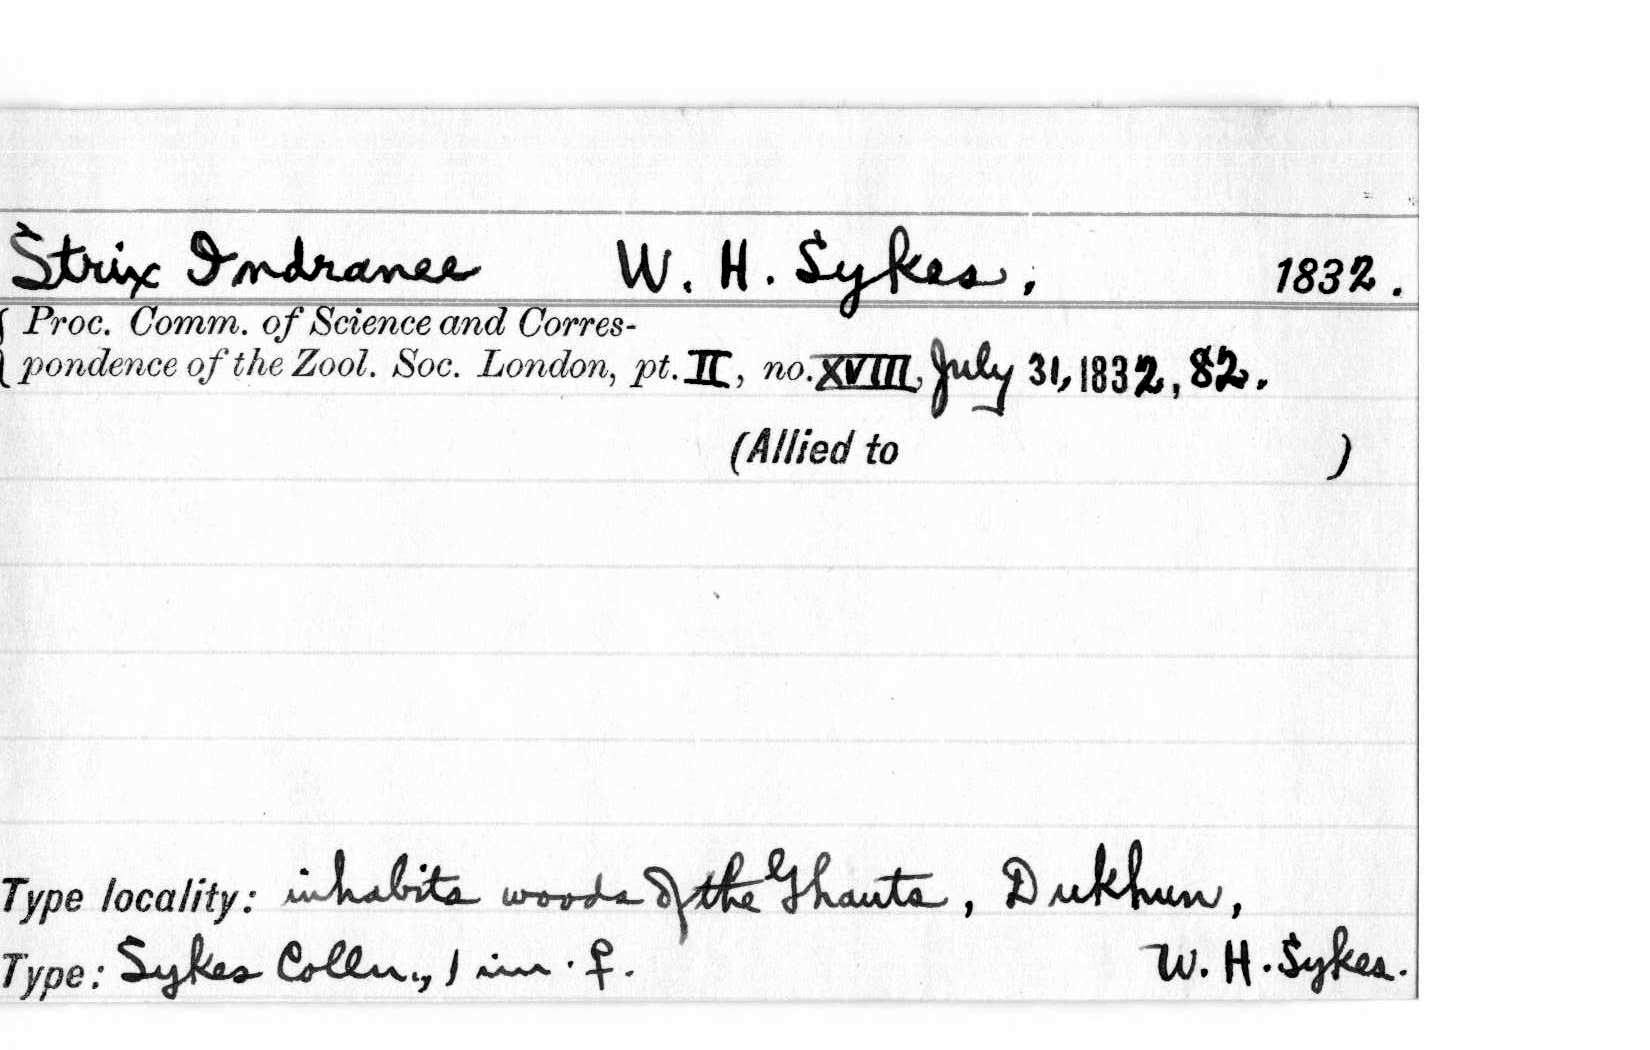 Strix Indranee W. H. Sykes, 1832.
{ Proc. Comm. of Science and Corres-
pondence of the Zool. Soc. London, pt. II, no. XVIII, July 31, 1832, 82.
(Allied to )
Type locality: inhabits woods of the Ghauts, Dukhun,
Type: Sykes Colln., 1 im. ♀. W. H. Sykes.